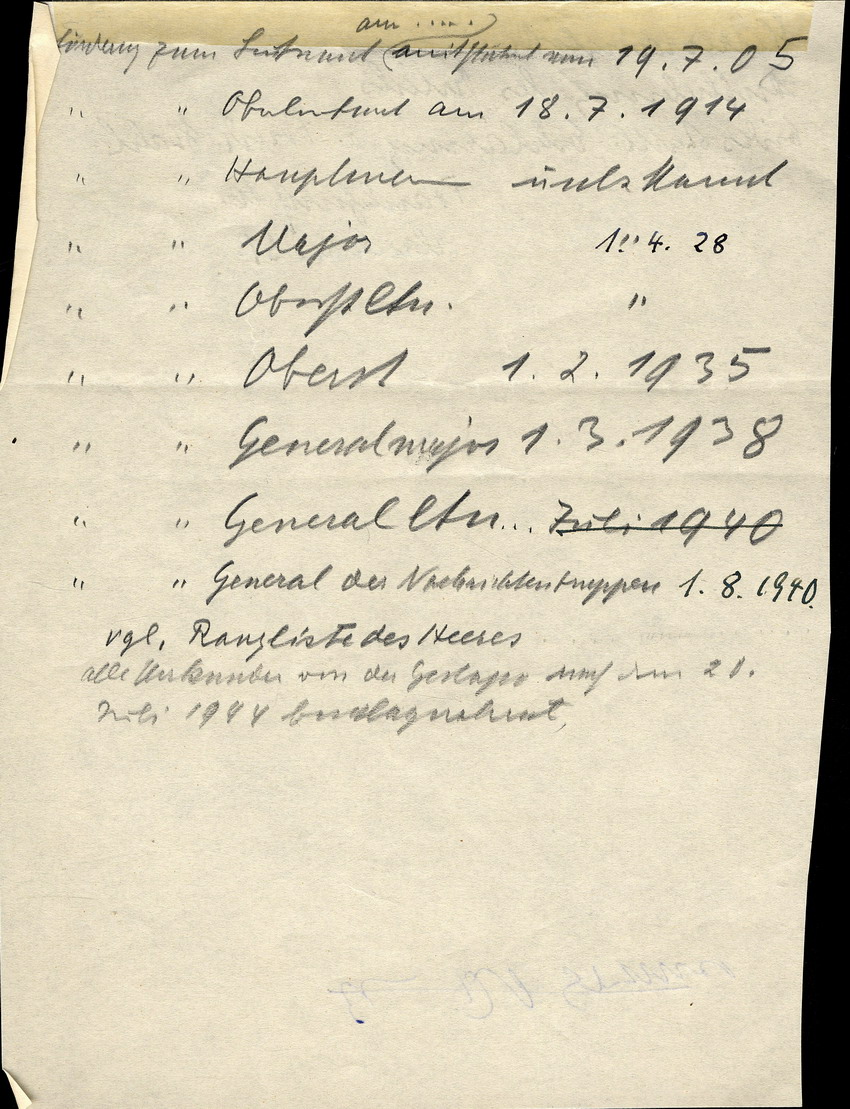 am .....
förderung zum Leutnant mit vom 19.7.05
" " Oberleutnant am 18.7.1914
" " Hauptmann unbekannt
" " Major 1. 4. 28
" " Oberstltn. "
" " Oberst 1. 2. 1935
" " Generalmajor 1.3.1938
" " Generalltn... Juli 1940
" " General der Nachrichtentruppen 1. 8. 1940.
vgl. Rangliste des Heeres
alle Urkunden von der Gestapo nach dem 20.
Juli 1944 beschlagnahmt,